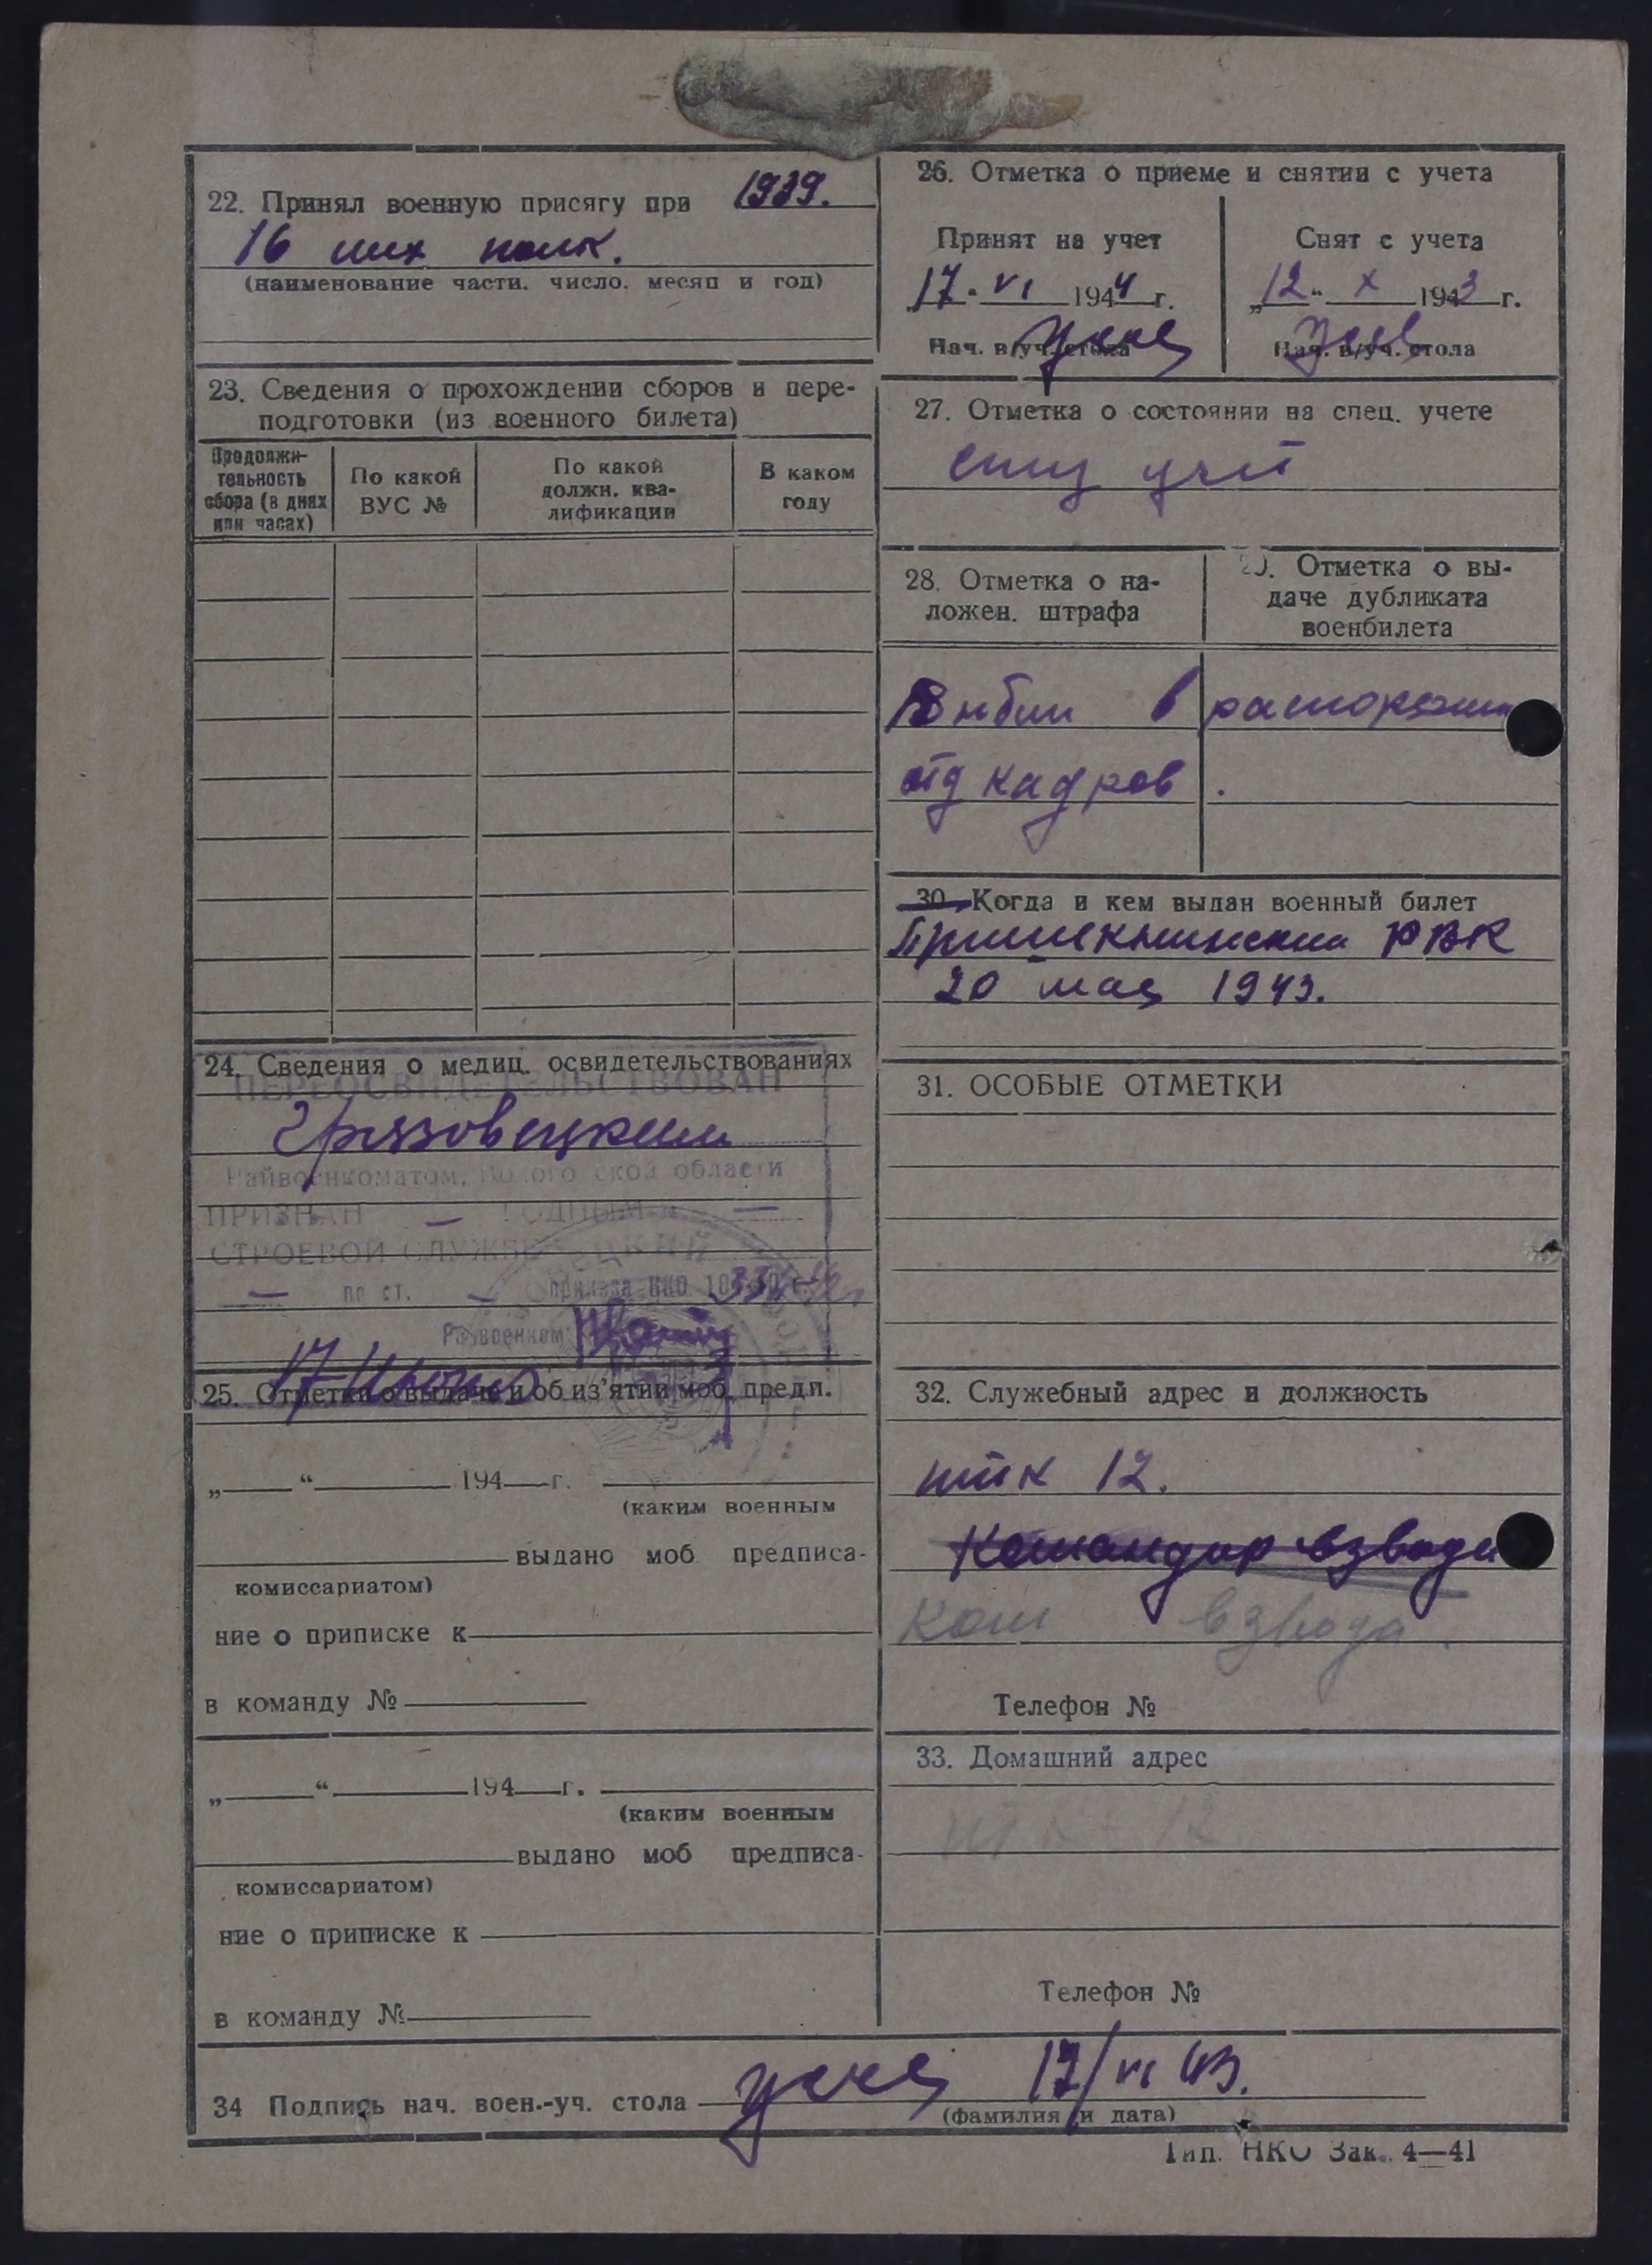 22. Принял военную присягу при 1939.
16 полк.
(наименование части, число, месяц и год)
23. Сведения о прохождении сборов и пере-
подготовки (из военного билета)
Продолжи-
тельность
сбора (в днях
или часах)
По какой
ВУС №
По какой
должн. ква-
лификации
В каком
году
24. Сведения о медиц. освидетельствованиях
ПЕРЕОСВИДЕТЕЛЬСТВОВАН
Грязовецким
Райвоенкоматом, Вологодской области
ПРИЗНАН — ГОДНЫМ К —
СТРОЕВОЙ СЛУЖБЕ
— по ст. — приказа НКО
Райвоенком
17 Июня
25. Отметки о выдаче и об из'ятии моб. предп.
„ “ 194 г.
(каким военным
выдано моб предписа-
комиссариатом)
ние о приписке к
в команду №
„ “ 194 г.
(каким военным
выдано моб предписа-
комиссариатом)
ние о приписке к
в команду №
26. Отметка о приеме и снятии с учета
Принят на учет
„17“ VI 1944 г.
Нач. в/уч. стола
Снят с учета
„12“ X 1943 г.
Нач. в/уч. стола
27. Отметка о состоянии на спец. учете
спец учет
28. Отметка о на-
ложен. штрафа
29. Отметка о вы-
даче дубликата
военбилета
Выбыл в распоряжен
отд кадров.
30. Когда и кем выдан военный билет
РВК
20 мая 1943.
31. ОСОБЫЕ ОТМЕТКИ
32. Служебный адрес и должность
12.
Командир взвода
Ком взвода.
Телефон №
33. Домашний адрес
12
Телефон №
34 Подпись нач. воен.-уч. стола 17/VI 43.
(фамилия и дата)
Тип. НКО Зак. 4—41